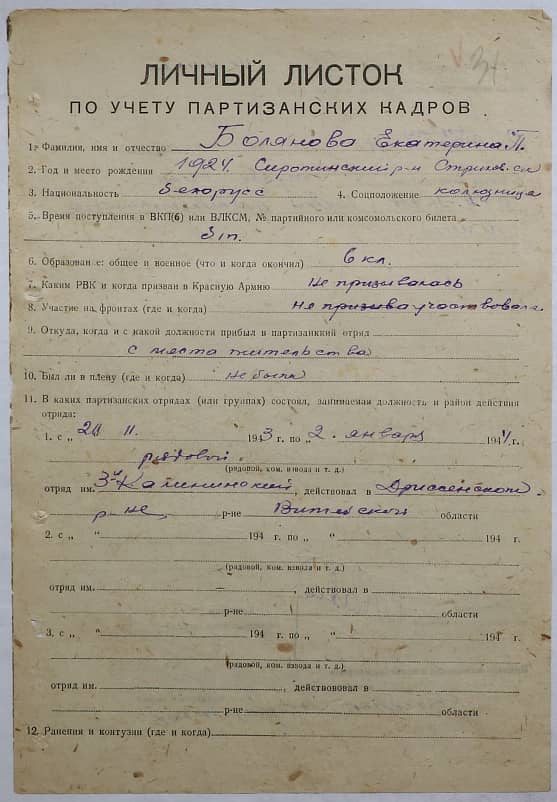 ЛИЧНЫЙ ЛИСТОК
ПО УЧЕТУ ПАРТИЗАНСКИХ КАДРОВ
1. Фамилия, имя и отчество Болянова Екатерина П.
2. Год и место рождения 1924. Сиротинский р-н
3. Национальность белорусс 4. Соцположение колхозница
5. Время поступления в ВКП(б) или ВЛКСМ, № партийного или комсомольского билета
б/п.
6. Образование: общее и военное (что и когда окончил) 6 кл.
7. Каким РВК и когда призван в Красную Армию Не призывалась
8. Участие на фронтах (где и когда) Не участвовала
9. Откуда, когда и с какой должности прибыл в партизанкий отряд
с места жительства
10. Был ли в плену (где и когда) не была
11. В каких партизанских отрядах (или группах) состоял, занимаемая должность и район действия
отряда:
1. с „ 20 II. 1943 г. по „ 2. января 1944 г.
рядовой
(рядовой, ком. взвода и т. д.)
отряд им. 3й Калининский, действовал в Дриссенском
р-не р-не Витебской области
2. с „ “ 194 г. по „ “ 194 г.
(рядовой, ком. взвода и т. д.)
отряд им. , действовал в
р-не области
3. с „ “ 194 г. по „ “ 194 г.
(рядовой, ком. взвода и т. д.)
отряд им. , действовал в
р-не области
12. Ранения и контузии (где и когда)